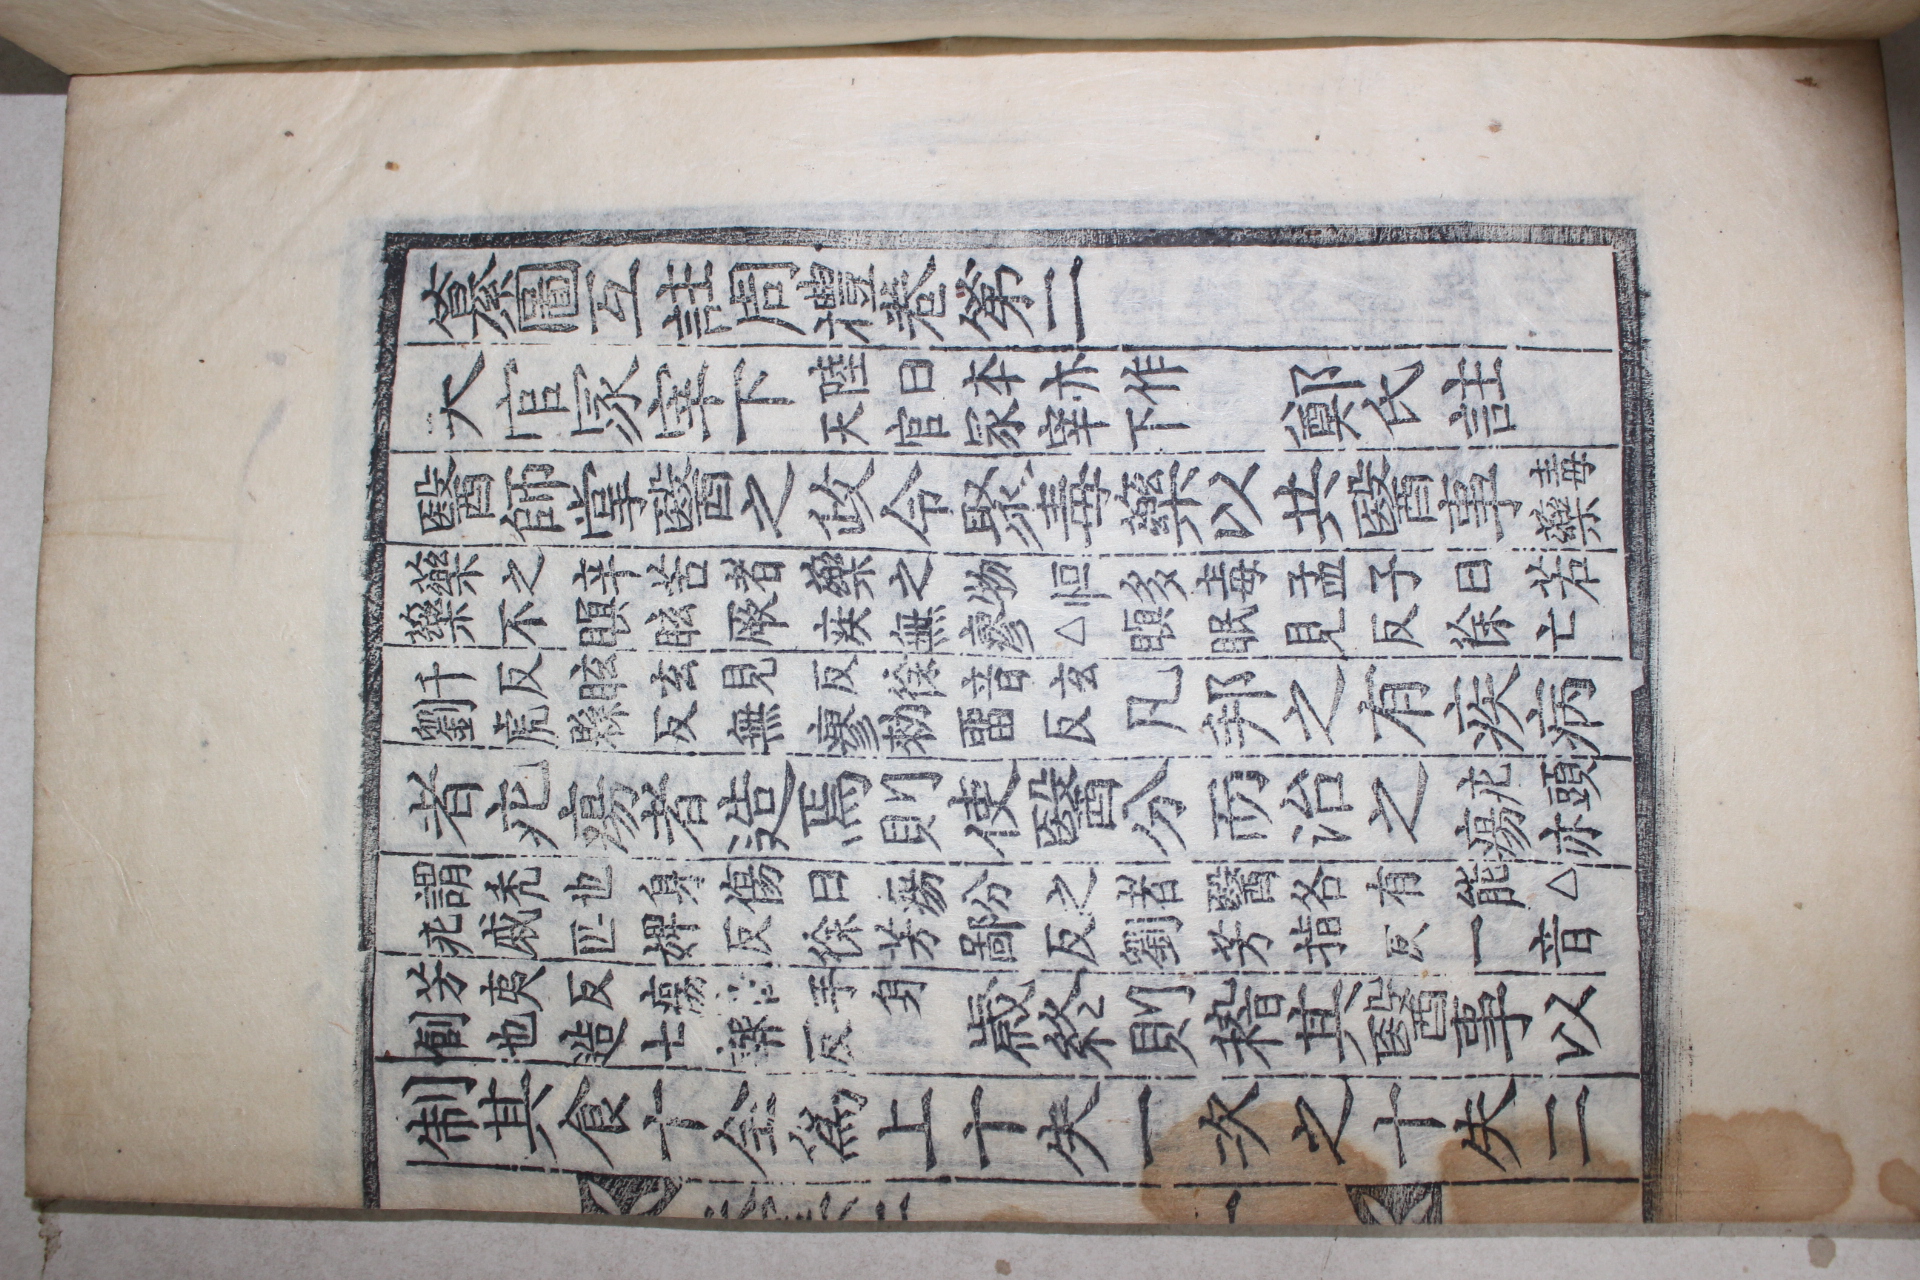 纂圖互註周禮卷第二
天官冢宰下
陸曰本亦作
天官冢宰下
鄭氏註
醫師掌醫之政令聚毒藥以共醫事
毒
藥
藥之辛苦者藥之物恒多毒孟子曰若
藥不瞑眩厥疾無瘳△瞑眠見反徐亡
千反眩玄見反徐音玄
劉虎縣反無瘳勑留反
凡邦之有疾病
者疕瘍者造焉則使醫分而治之
疕頭
瘍亦
謂禿也身傷曰瘍分之者醫各有能△
疕戚匹婢反徐芳鄙反劉芳指反一音
芳夷反瘍手身
創也造七報反
歲終則稽其醫事以
制其食十全爲上十失一次之十失二